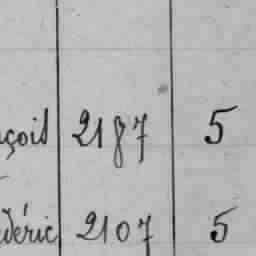 çois 2187 5
déric 2107 5